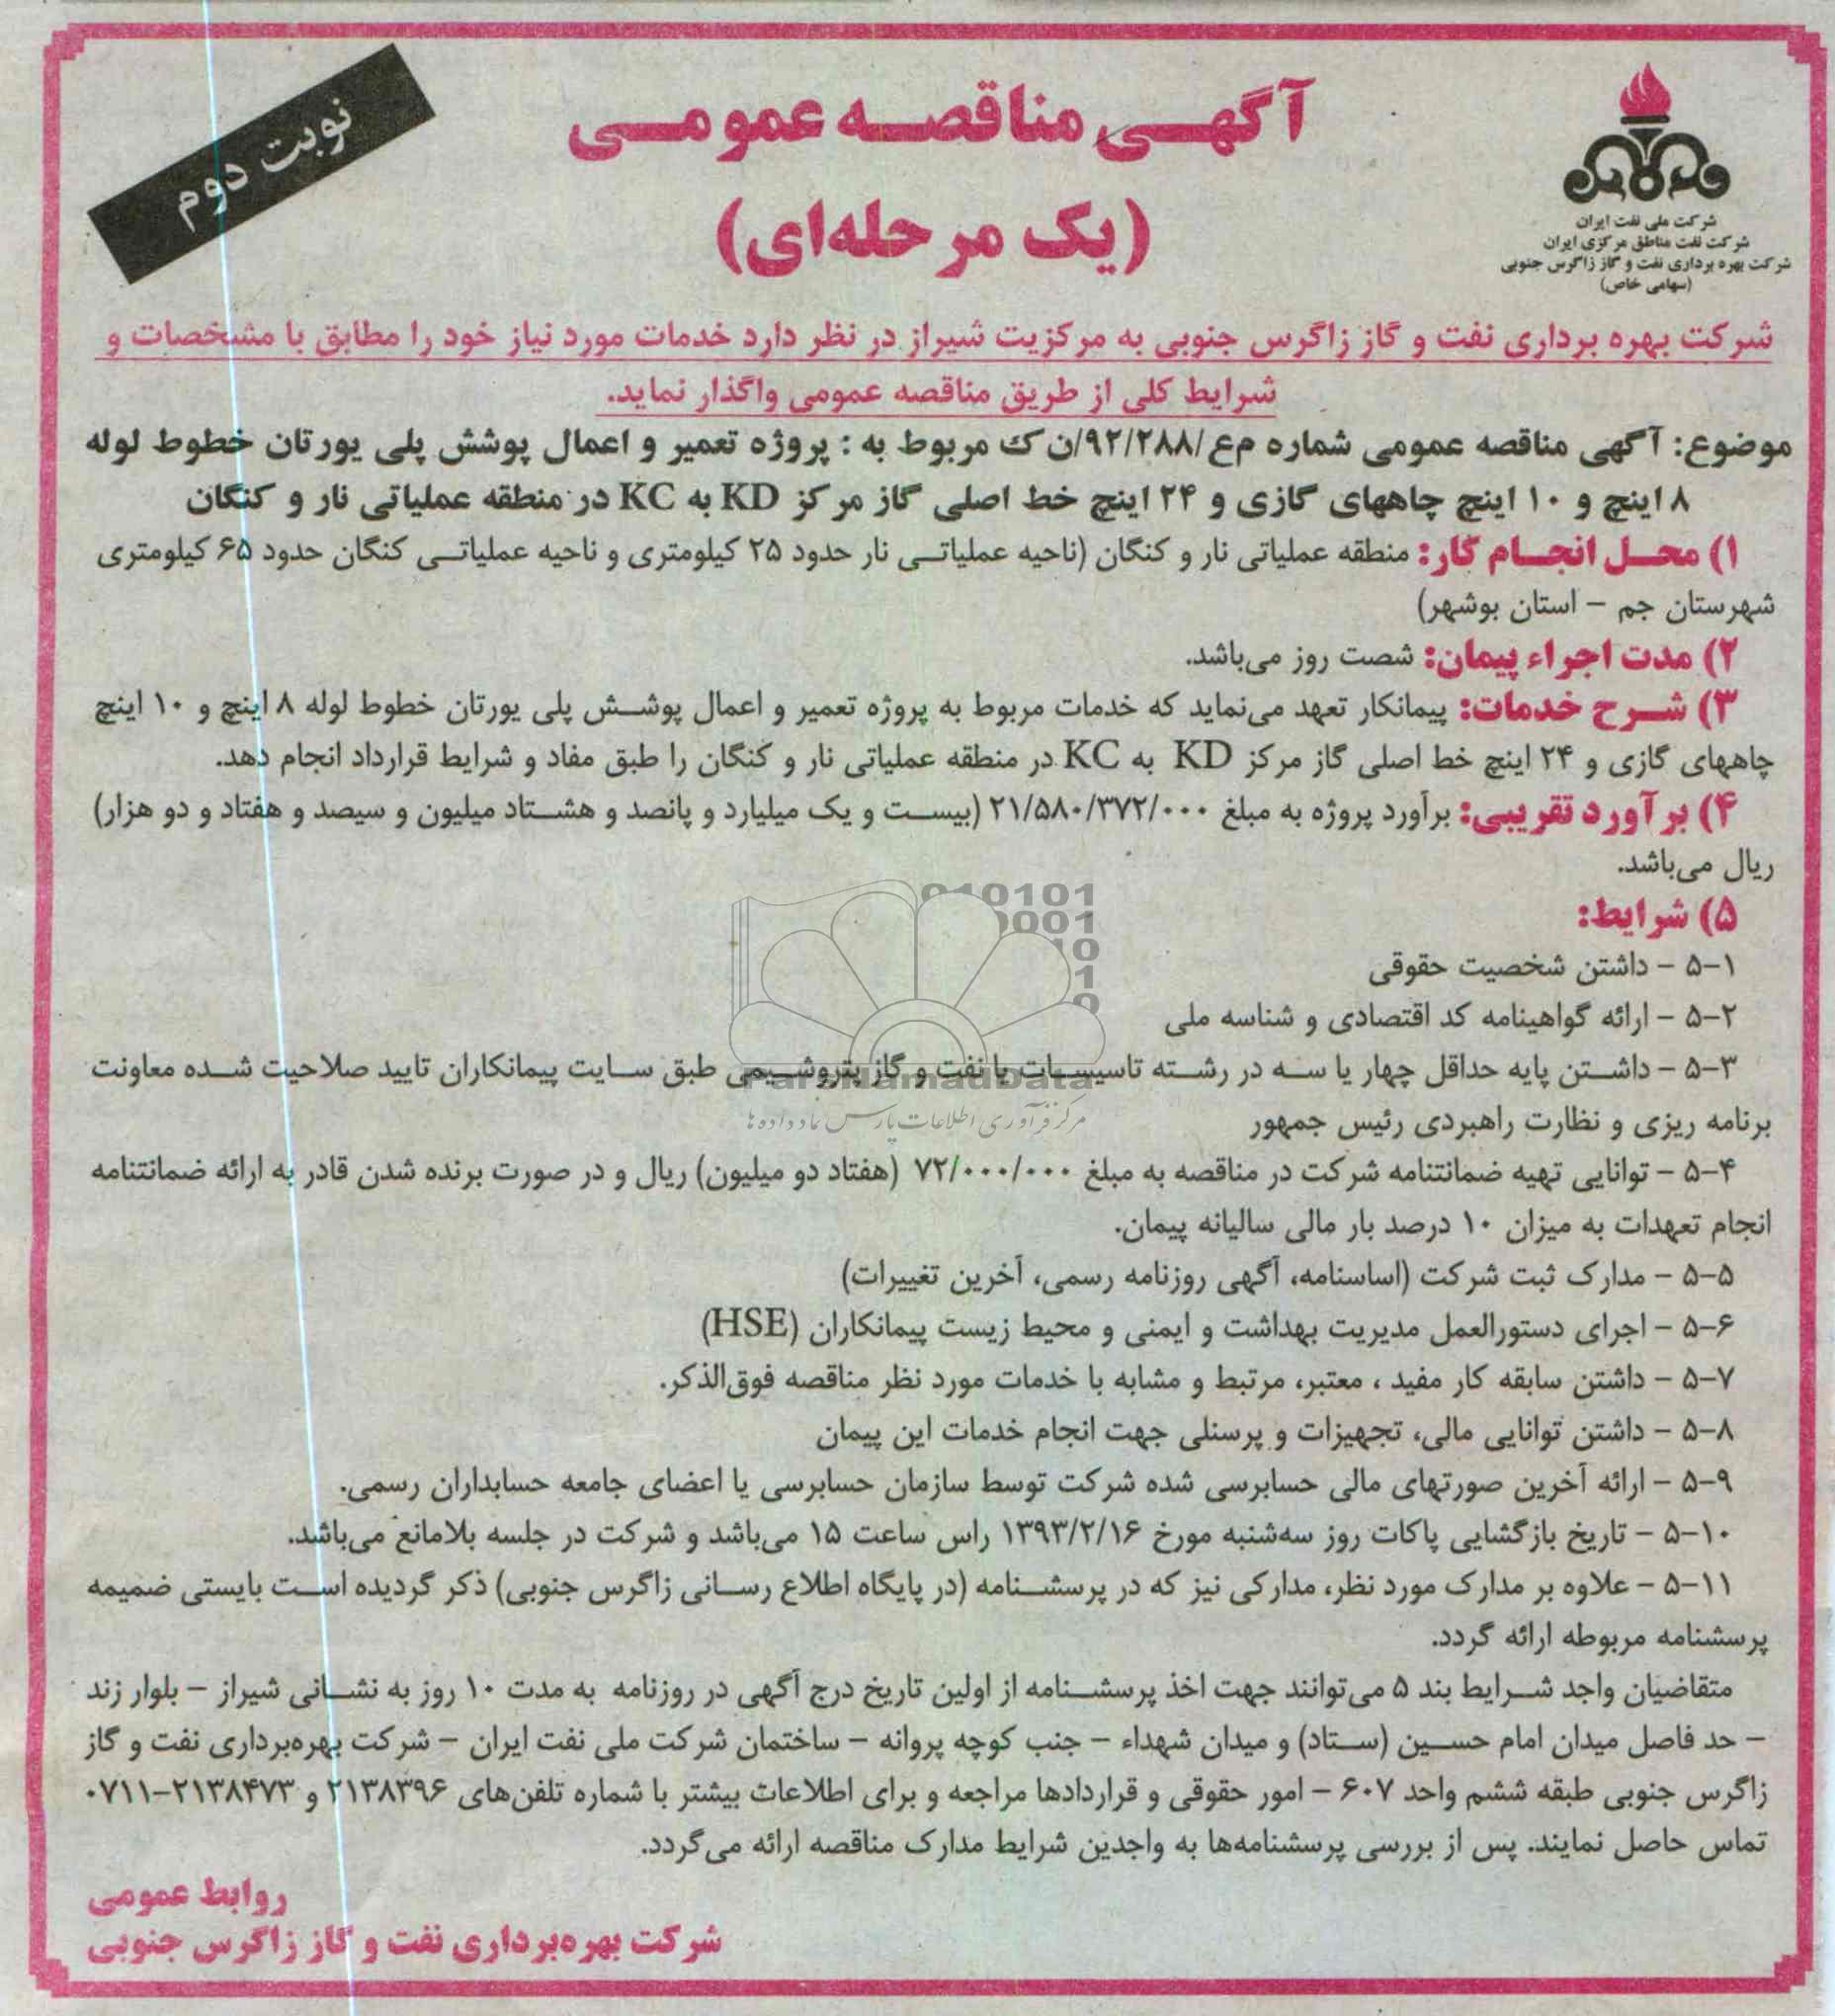 آگهی مناقصه عمومی
(یک مرحله‌ای)
نوبت دوم
شرکت ملی نفت ایران
شرکت نفت مناطق مرکزی ایران
شرکت بهره برداری نفت و گاز زاگرس جنوبی
(سهامی خاص)
شرکت بهره برداری نفت و گاز زاگرس جنوبی به مرکزیت شیراز در نظر دارد خدمات مورد نیاز خود را مطابق با مشخصات و
شرایط کلی از طریق مناقصه عمومی واگذار نماید.
موضوع: آگهی مناقصه عمومی شماره م‌ع/۹۲/۲۸۸/ن ک مربوط به : پروژه تعمیر و اعمال پوشش پلی یورتان خطوط لوله
۸ اینچ و ۱۰ اینچ چاههای گازی و ۲۴ اینچ خط اصلی گاز مرکز KD به KC در منطقه عملیاتی نار و کنگان
۱) محل انجام کار: منطقه عملیاتی نار و کنگان (ناحیه عملیاتی نار حدود ۲۵ کیلومتری و ناحیه عملیاتی کنگان حدود ۶۵ کیلومتری
شهرستان جم – استان بوشهر)
۲) مدت اجراء پیمان: شصت روز می‌باشد.
۳) شرح خدمات: پیمانکار تعهد می‌نماید که خدمات مربوط به پروژه تعمیر و اعمال پوشش پلی یورتان خطوط لوله ۸ اینچ و ۱۰ اینچ
چاههای گازی و ۲۴ اینچ خط اصلی گاز مرکز KD به KC در منطقه عملیاتی نار و کنگان را طبق مفاد و شرایط قرارداد انجام دهد.
۴) برآورد تقریبی: برآورد پروژه به مبلغ ۲۱/۵۸۰/۳۷۲/۰۰۰ (بیست و یک میلیارد و پانصد و هشتاد میلیون و سیصد و هفتاد و دو هزار)
ریال می‌باشد.
۵) شرایط:
۵-۱ – داشتن شخصیت حقوقی
۵-۲ – ارائه گواهینامه کد اقتصادی و شناسه ملی
۵-۳ – داشتن پایه حداقل چهار یا سه در رشته تاسیسات یا نفت و گاز پتروشیمی طبق سایت پیمانکاران تایید صلاحیت شده معاونت
برنامه ریزی و نظارت راهبردی رئیس جمهور
۵-۴ – توانایی تهیه ضمانتنامه شرکت در مناقصه به مبلغ ۷۲/۰۰۰/۰۰۰ (هفتاد دو میلیون) ریال و در صورت برنده شدن قادر به ارائه ضمانتنامه
انجام تعهدات به میزان ۱۰ درصد بار مالی سالیانه پیمان.
۵-۵ – مدارک ثبت شرکت (اساسنامه، آگهی روزنامه رسمی، آخرین تغییرات)
۵-۶ – اجرای دستورالعمل مدیریت بهداشت و ایمنی و محیط زیست پیمانکاران (HSE)
۵-۷ – داشتن سابقه کار مفید ، معتبر، مرتبط و مشابه با خدمات مورد نظر مناقصه فوق‌الذکر.
۵-۸ – داشتن توانایی مالی، تجهیزات و پرسنلی جهت انجام خدمات این پیمان
۵-۹ – ارائه آخرین صورتهای مالی حسابرسی شده شرکت توسط سازمان حسابرسی یا اعضای جامعه حسابداران رسمی.
۵-۱۰ – تاریخ بازگشایی پاکات روز سه‌شنبه مورخ ۱۳۹۳/۲/۱۶ راس ساعت ۱۵ می‌باشد و شرکت در جلسه بلامانع می‌باشد.
۵-۱۱ – علاوه بر مدارک مورد نظر، مدارکی نیز که در پرسشنامه (در پایگاه اطلاع رسانی زاگرس جنوبی) ذکر گردیده است بایستی ضمیمه
پرسشنامه مربوطه ارائه گردد.
متقاضیان واجد شرایط بند ۵ می‌توانند جهت اخذ پرسشنامه از اولین تاریخ درج آگهی در روزنامه به مدت ۱۰ روز به نشانی شیراز – بلوار زند
– حد فاصل میدان امام حسین (ستاد) و میدان شهداء – جنب کوچه پروانه – ساختمان شرکت ملی نفت ایران – شرکت بهره‌برداری نفت و گاز
زاگرس جنوبی طبقه ششم واحد ۶۰۷ – امور حقوقی و قراردادها مراجعه و برای اطلاعات بیشتر با شماره تلفن‌های ۲۱۳۸۳۹۶ و ۲۱۳۸۴۷۳-۰۷۱۱
تماس حاصل نمایند. پس از بررسی پرسشنامه‌ها به واجدین شرایط مدارک مناقصه ارائه می‌گردد.
روابط عمومی
شرکت بهره‌برداری نفت و گاز زاگرس جنوبی
ParsNamadData
مرکز فرآوری اطلاعات پارس نماد داده ها